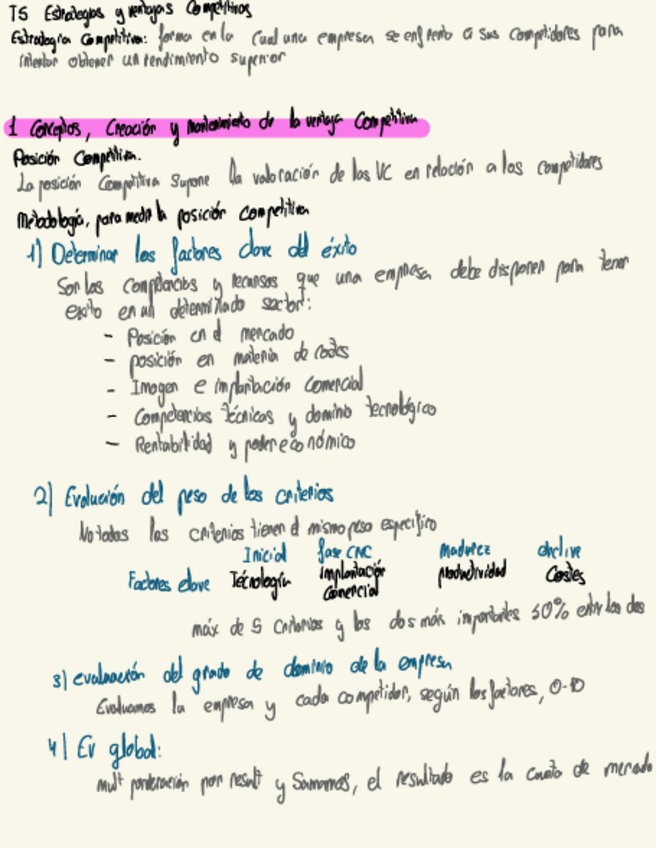 T5 Estrategias y ventajas Competitivas
Estrategia Competitiva: forma en la cual una empresa se enfrenta a sus Competidores para
intentar obtener un rendimiento superior
1 Conceptos, Creación y mantenimiento de la ventaja Competitiva
Posición Competitiva.
La posición Competitiva supone la valoración de las VC en relación a los competidores
Metodología, para medir la posición competitiva
1) Determinar los factores clave del éxito
Son las competencias y recursos que una empresa debe disponer para tener
exito en un determinado sector:
- Posición en el mercado
- posición en materia de costes
- Imagen e implantación Comercial
- Competencias técnicas y dominio tecnológico
- Rentabilidad y poder económico
2) Evaluación del peso de los criterios
No todos los criterios tienen el mismo peso específico
Inicial fase CNC madurez declive
Factores clave Tecnología Implantación Comercial productividad Costes
máx de 5 Criterios y los dos más importantes 50% entre los dos
3) evaluación del grado de dominio de la empresa
Evaluamos la empresa y cada competidor, según los factores, 0-10
4) Ev global:
mult ponderación por result y Sumamos, el resultado es la cuota de mercado